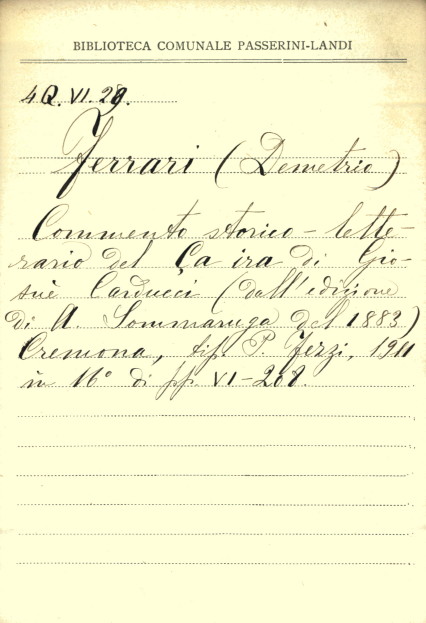 BIBLIOTECA COMUNALE PASSERINI-LANDI
4Q.VI.29.
Ferrari (Demetrio)
Commento storico-lette-
rario del Ça ira di Gio-
suè Carducci (dall'edizione
di A. Sommaruga del 1883)
Cremona, tip. P. Fezzi, 1911
in 16° di pp. VI-238.